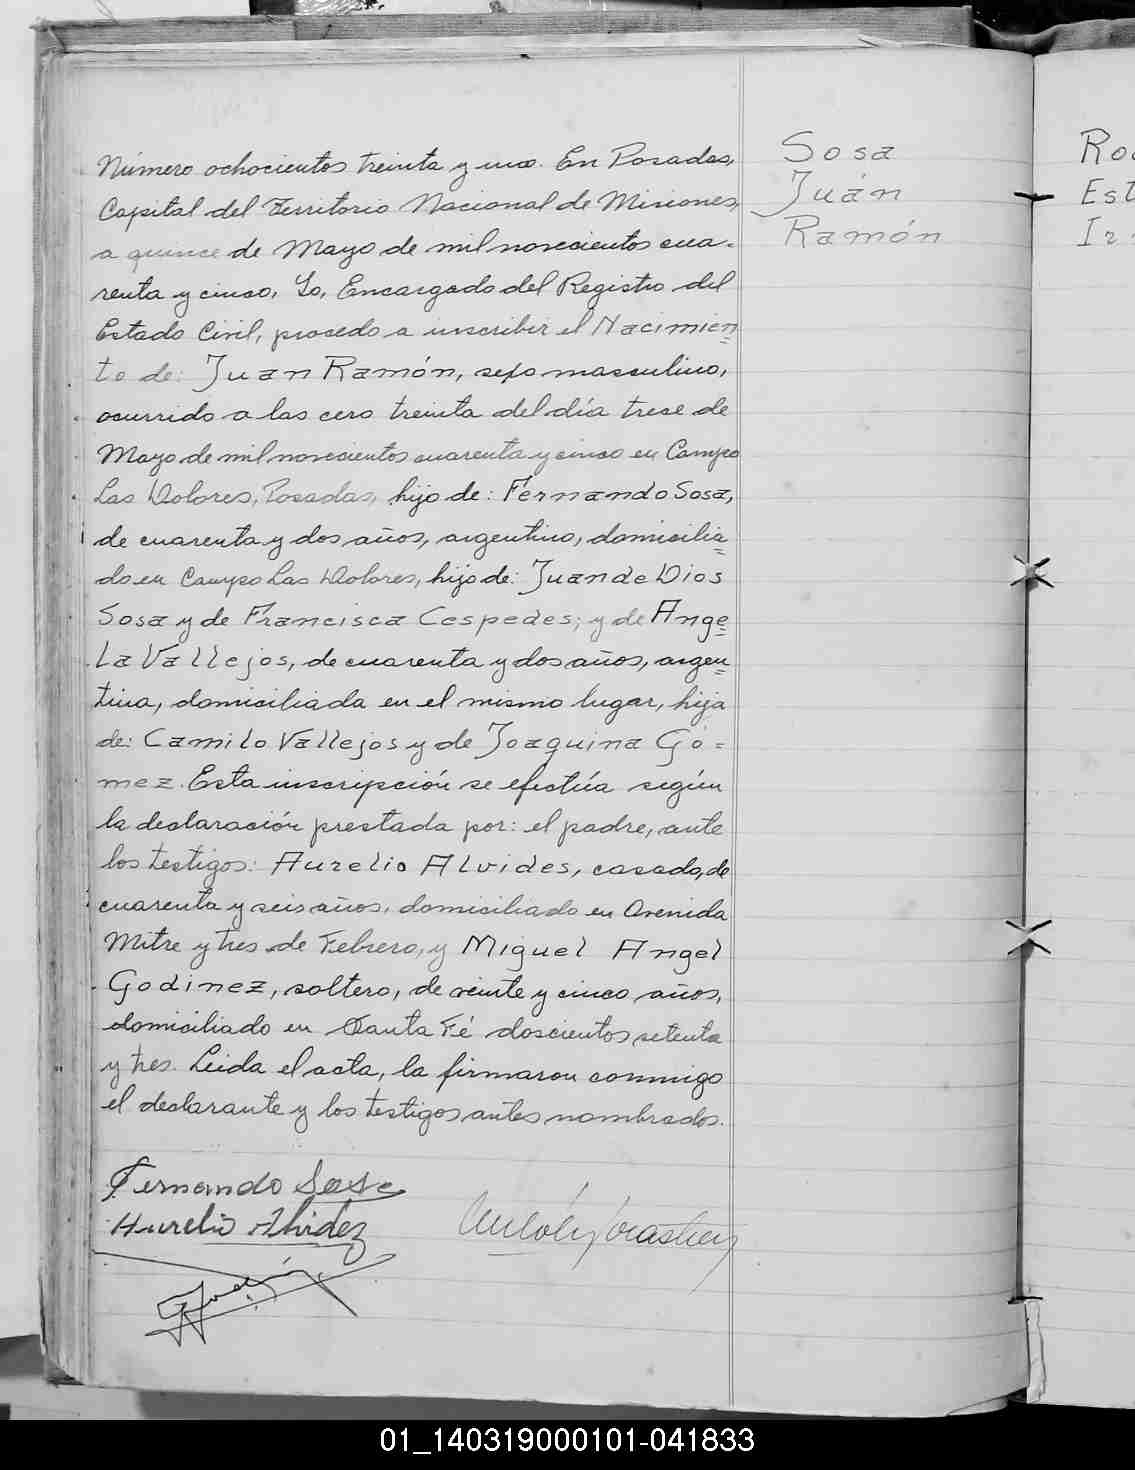 Número ochocientos treinta y uno. En Posadas,
Capital del Territorio Nacional de Misiones,
a quince de Mayo de mil novecientos cua-
renta y cinco, Yo, Encargado del Registro del
Estado Civil, procedo a inscribir el Nacimien=
to de: Juan Ramón, sexo masculino,
ocurrido a las cero treinta del día trece de
Mayo de mil novecientos cuarenta y cinco en Campo
Las Dolores, Posadas, hijo de: Fernando Sosa,
de cuarenta y dos años, argentino, domicilia=
do en Campo Las Dolores, hijo de: Juan de Dios
Sosa y de Francisca Cespedes; y de Ange=
la Vallejos, de cuarenta y dos años, argen=
tina, domiciliada en el mismo lugar, hija
de: Camilo Vallejos y de Joaquina Gó=
mez. Esta inscripción se efectúa según
la declaración prestada por: el padre, ante
los testigos: Aurelio Alvides, casado, de
cuarenta y seis años, domiciliado en Avenida
Mitre y tres de Febrero, y Miguel Angel
Godinez, soltero, de veinte y cinco años,
domiciliado en Santa Fé doscientos setenta
y tres. Leida el acta, la firmaron conmigo
el declarante y los testigos antes nombrados.
Fernando Sosa
Aurelio Alvidez
Sosa
Juán
Ramón
Ro
Est
Ir
01_140319000101-041833